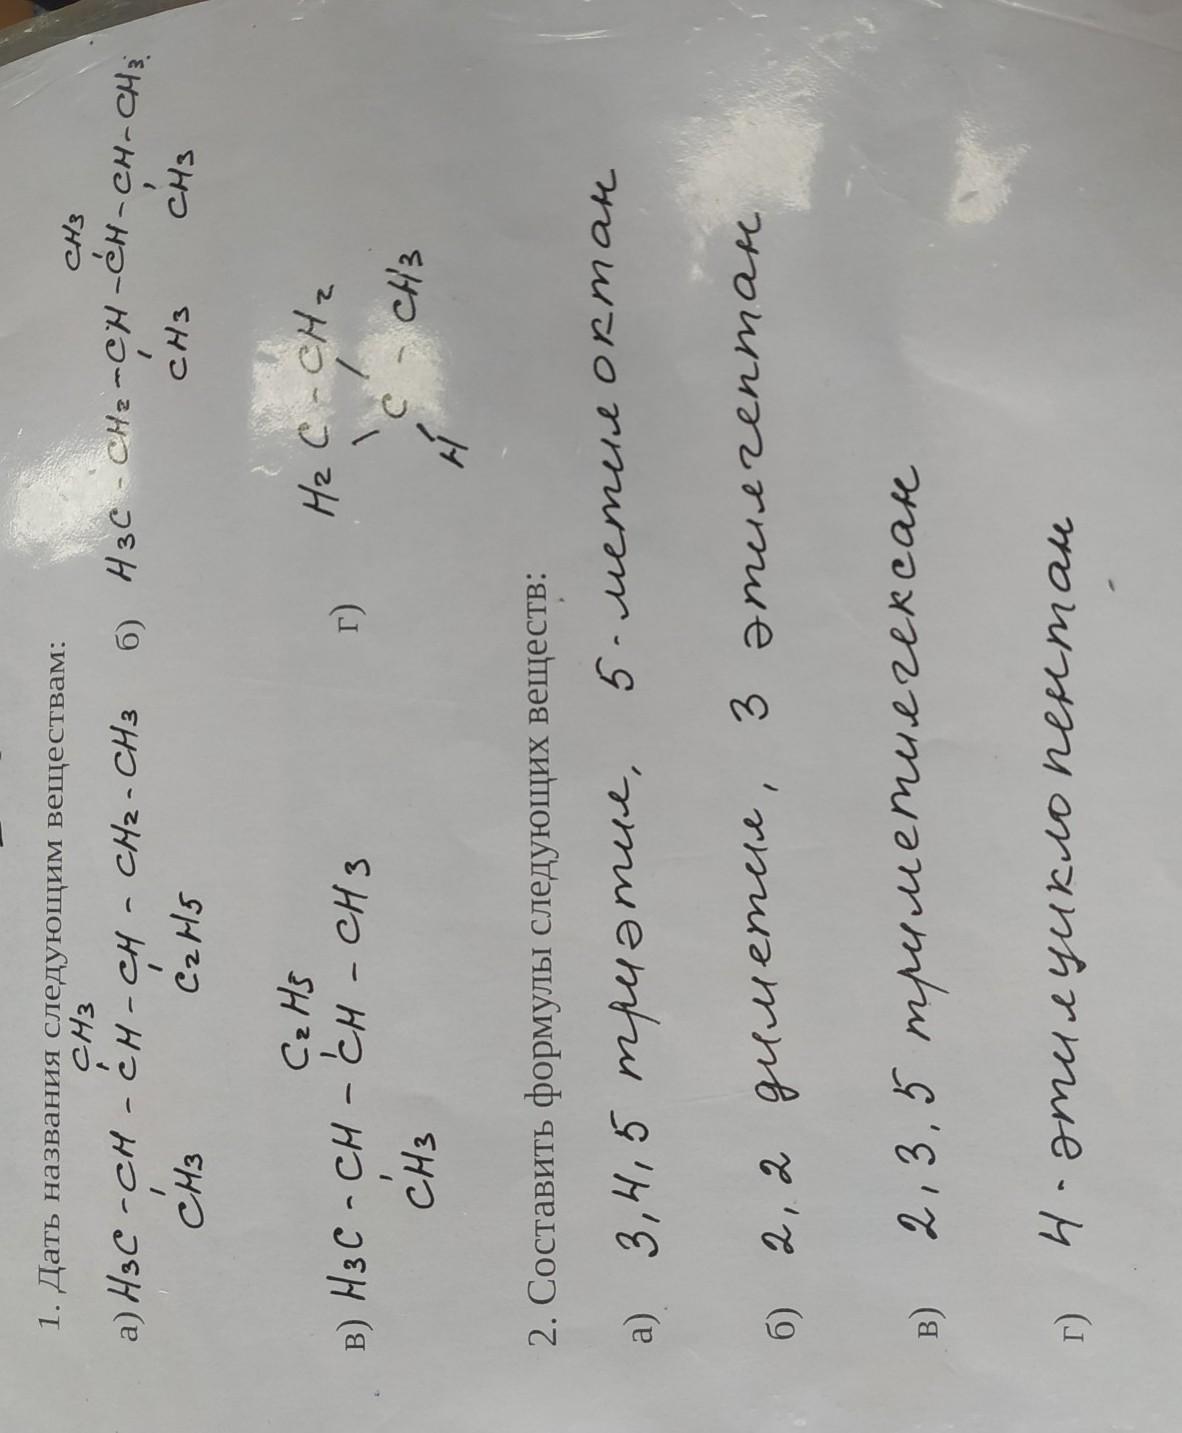 1. Дать названия следующим веществам:
CH3
CH3
а) H3C - CH - CH - CH - CH2 - CH3
б) H3C - CH2 - CH - CH - CH - CH3
CH3
C2H5
CH3
CH3
C2H5
в) H3C - CH - CH - CH3
г) H2C - CH2
CH3
C - CH3
H
2. Составить формулы следующих веществ:
а) 3,4,5 триэтил, 5-метилоктан
б) 2,2 диметил, 3 этилгептан
в) 2,3,5 триметилгексан
г) 4-этилциклопентан